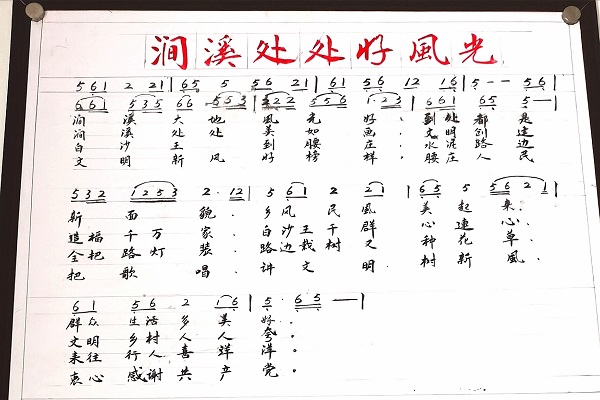 涧溪处处好風光
5 6 1 2 2 1 | 6 5 5 5 6 2 1 | 6 1 5 6 1 2 1 6 | 5 - - 5 6 |
6 6 1 5 3 5 6 6 5 5 3 | 2 2 5 5 6 1· 2 3 | 6 6 1 6 5 5 — |
涧 溪 大 地 風 光 好 , 到 处 都 是
涧 溪 处 处 美 如 画 , 文 明 创 建
白 沙 王 到 腰 庄 , 水 泥 路 边
文 明 新 风 好 榜 样 , 腰 庄 人 民
5 3 2 1 2 5 3 2· 1 2 | 5 6 1 2 2 1 | 6 5 5 5 6 2 1 |
新 面 貌 . 乡 风 民 風 美 起 来.
造 福 千 万 家 . 白 沙 王 千 群 心 連 心.
全 把 路 灯 装 . 路 边 栽 树 又 种 花 草.
把 歌 唱 . 讲 文 明 . 树 新 風 .
6 1 5 6 2 1 6 | 5· 6 5 — ‖
群 众 生 活 乡 美 好 .
文 明 乡 村 人 人 夸 。
来 往 行 人 喜 洋 洋 。
衷 心 感 谢 共 产 党 。